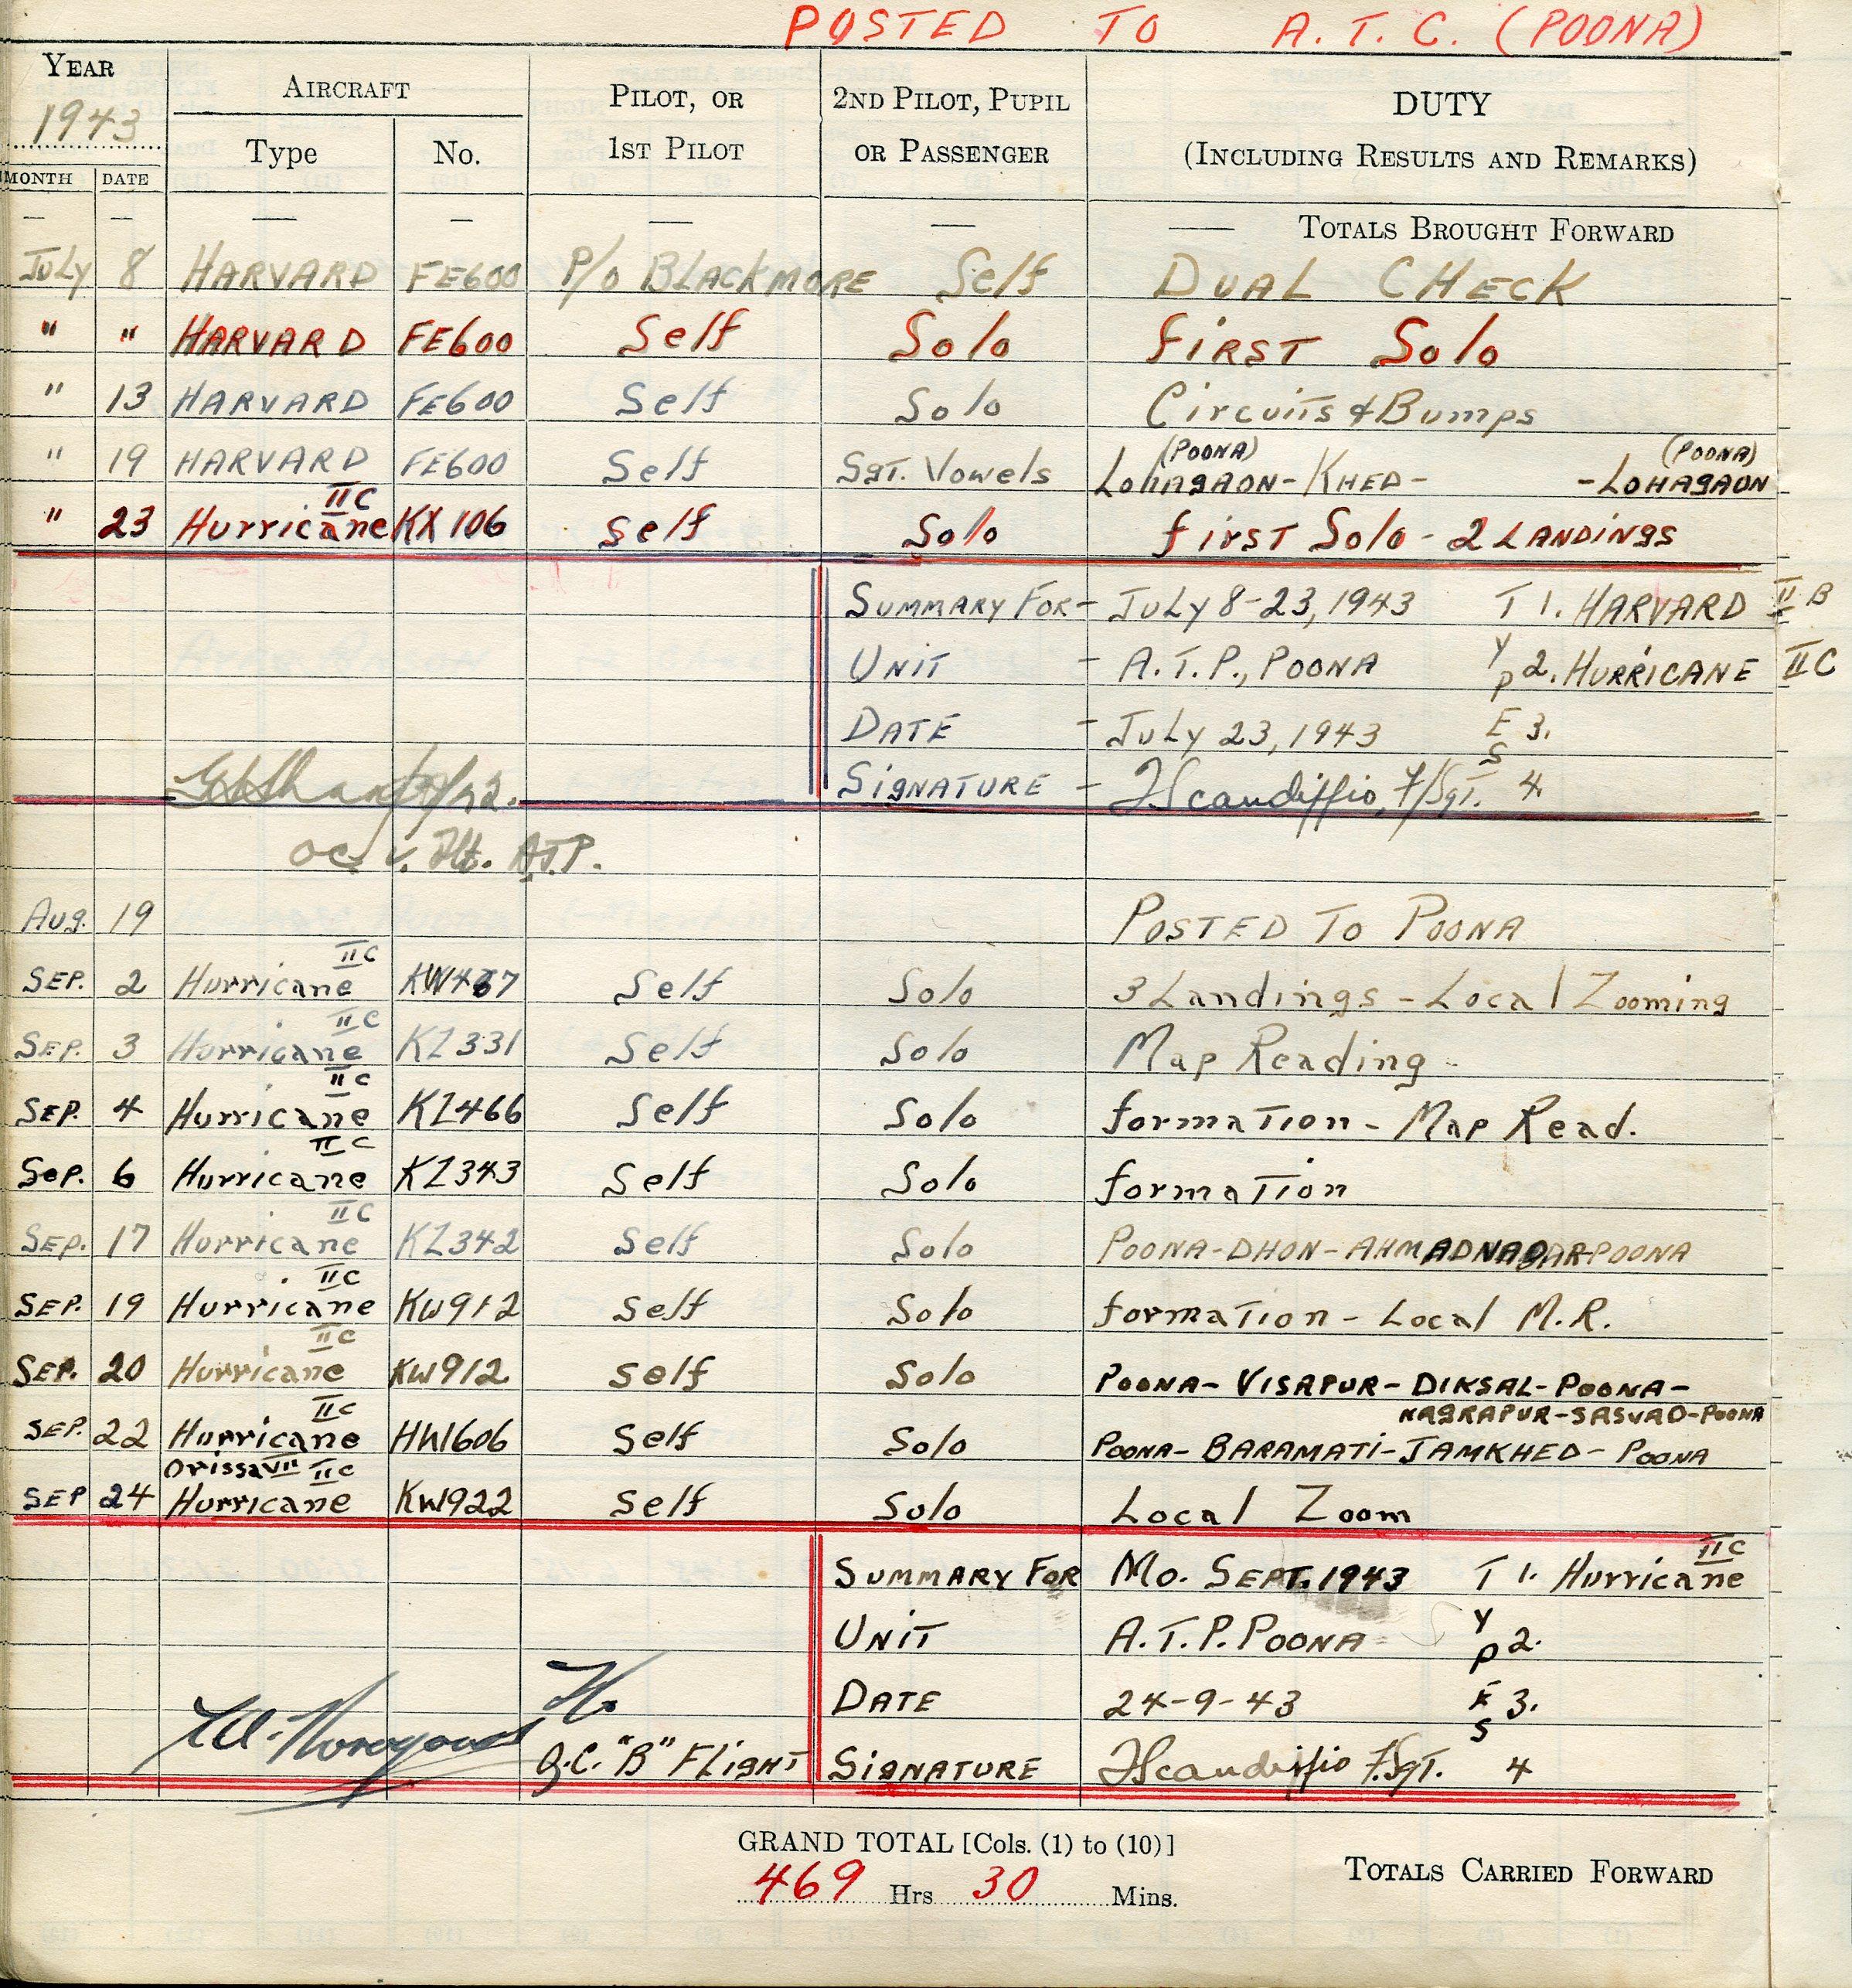 POSTED TO A.T.C. (POONA)
YEAR 1943 AIRCRAFT PILOT, OR 1ST PILOT 2ND PILOT, PUPIL OR PASSENGER DUTY (INCLUDING RESULTS AND REMARKS)
MONTH DATE Type No.
— — — — — — — TOTALS BROUGHT FORWARD
July 8 HARVARD FE600 P/O BLACKMORE Self DUAL CHECK
" " HARVARD FE600 Self Solo FIRST Solo
" 13 HARVARD FE600 Self Solo Circuits & Bumps
" 19 HARVARD FE600 Self Sgt. Vowels LOHAGAON (POONA) - KHED - - LOHAGAON (POONA)
" 23 Hurricane IIC KX106 Self Solo first Solo - 2 LANDINGS
SUMMARY FOR - JULY 8-23, 1943 T 1. HARVARD II B
UNIT - A.T.P., POONA Y P 2. HURRICANE II C
DATE - JULY 23, 1943 E 3.
SIGNATURE - JScandiffio, F/Sgt. S 4.
OC. Flt. A.T.P.
Aug. 19 POSTED TO POONA
SEP. 2 Hurricane IIC Self Solo 3 Landings - Local Zooming
SEP. 3 Hurricane IIC KZ331 Self Solo Map Reading
SEP. 4 Hurricane IIC KZ466 Self Solo formation - Map Read.
Sep. 6 Hurricane IIC KZ343 Self Solo formation
SEP. 17 Hurricane IIC KZ342 Self Solo POONA-DHON-AHMADNAGAR-POONA
SEP. 19 Hurricane IIC KW912 Self Solo formation - Local M.R.
SEP. 20 Hurricane IIC KW912 Self Solo POONA- VISAPUR- DIKSAL- POONA-
NAGRAPUR-SASVAD-POONA
SEP. 22 Hurricane IIC HW606 Self Solo POONA- BARAMATI- JAMKHED- POONA
SEP 24 Hurricane Orissa VII IIC KW922 Self Solo Local Zoom
SUMMARY FOR Mo. SEPT. 1943 T 1. Hurricane IIC
UNIT A.T.P. POONA Y P 2.
DATE 24-9-43 E 3.
O.C. "B" FLIGHT SIGNATURE JScandiffio F.Sgt. S 4
GRAND TOTAL [Cols. (1) to (10)]
469 Hrs 30 Mins. TOTALS CARRIED FORWARD